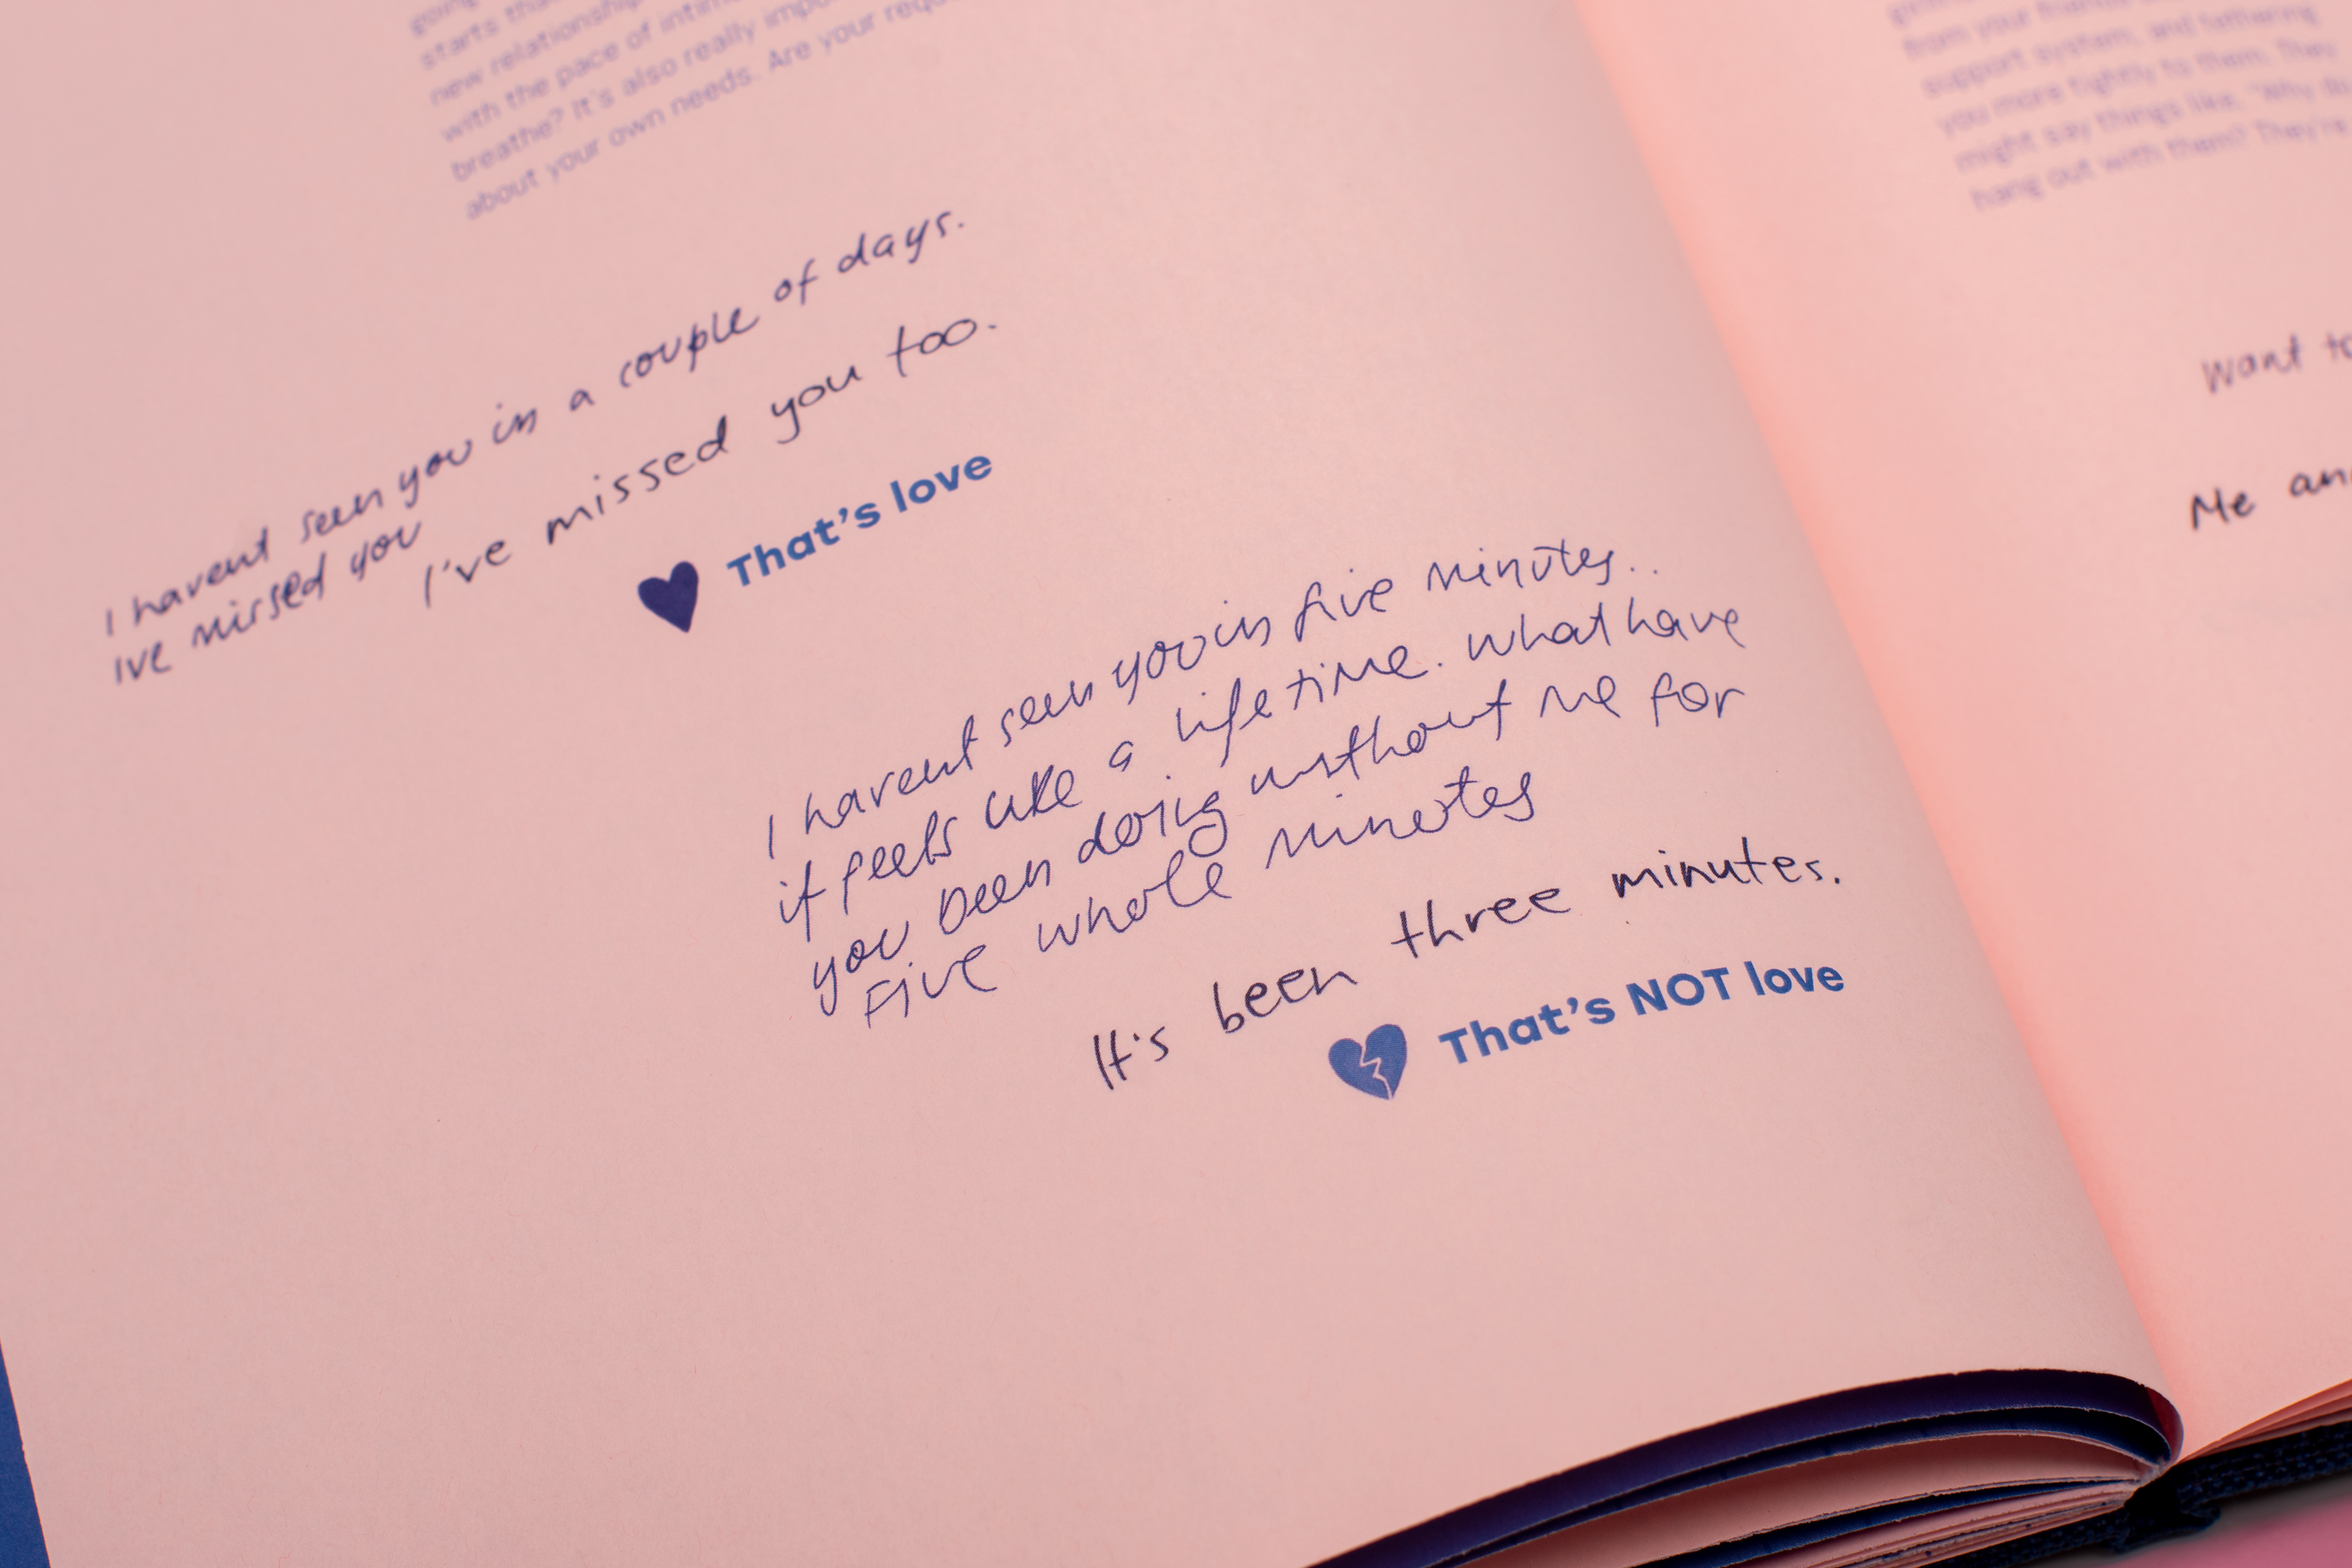 going
starts
new relationship
with the pace of
breathe? It's also really
about your own needs. Are your
I havent seen you in a couple of days.
Ive missed you
I've missed you too.
That's love
I havent seen you in five minutes..
it feels like a lifetime. What have
you been doing without me for
Five whole minutes
It's been three minutes.
That's NOT love
from your friends
support system, and tethering
you more tightly to them. They
might say things like, "Why do
hang out with them? They're
Want to
Me